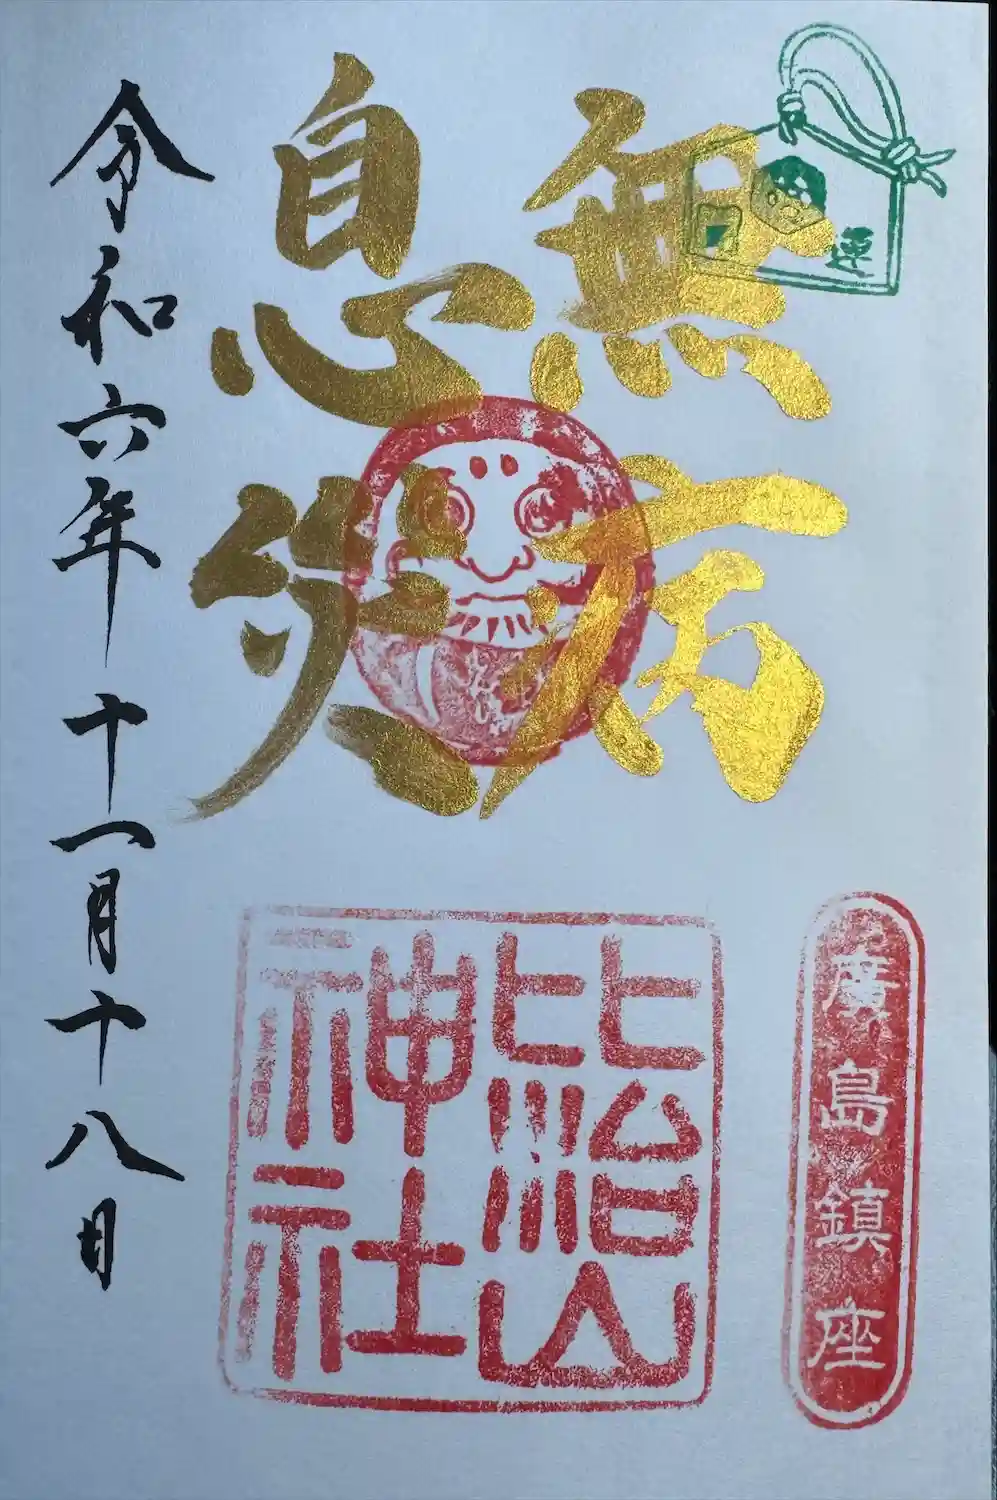 運
無病
息災
廣島鎮座
比治山
神社
令和六年 十一月十八日